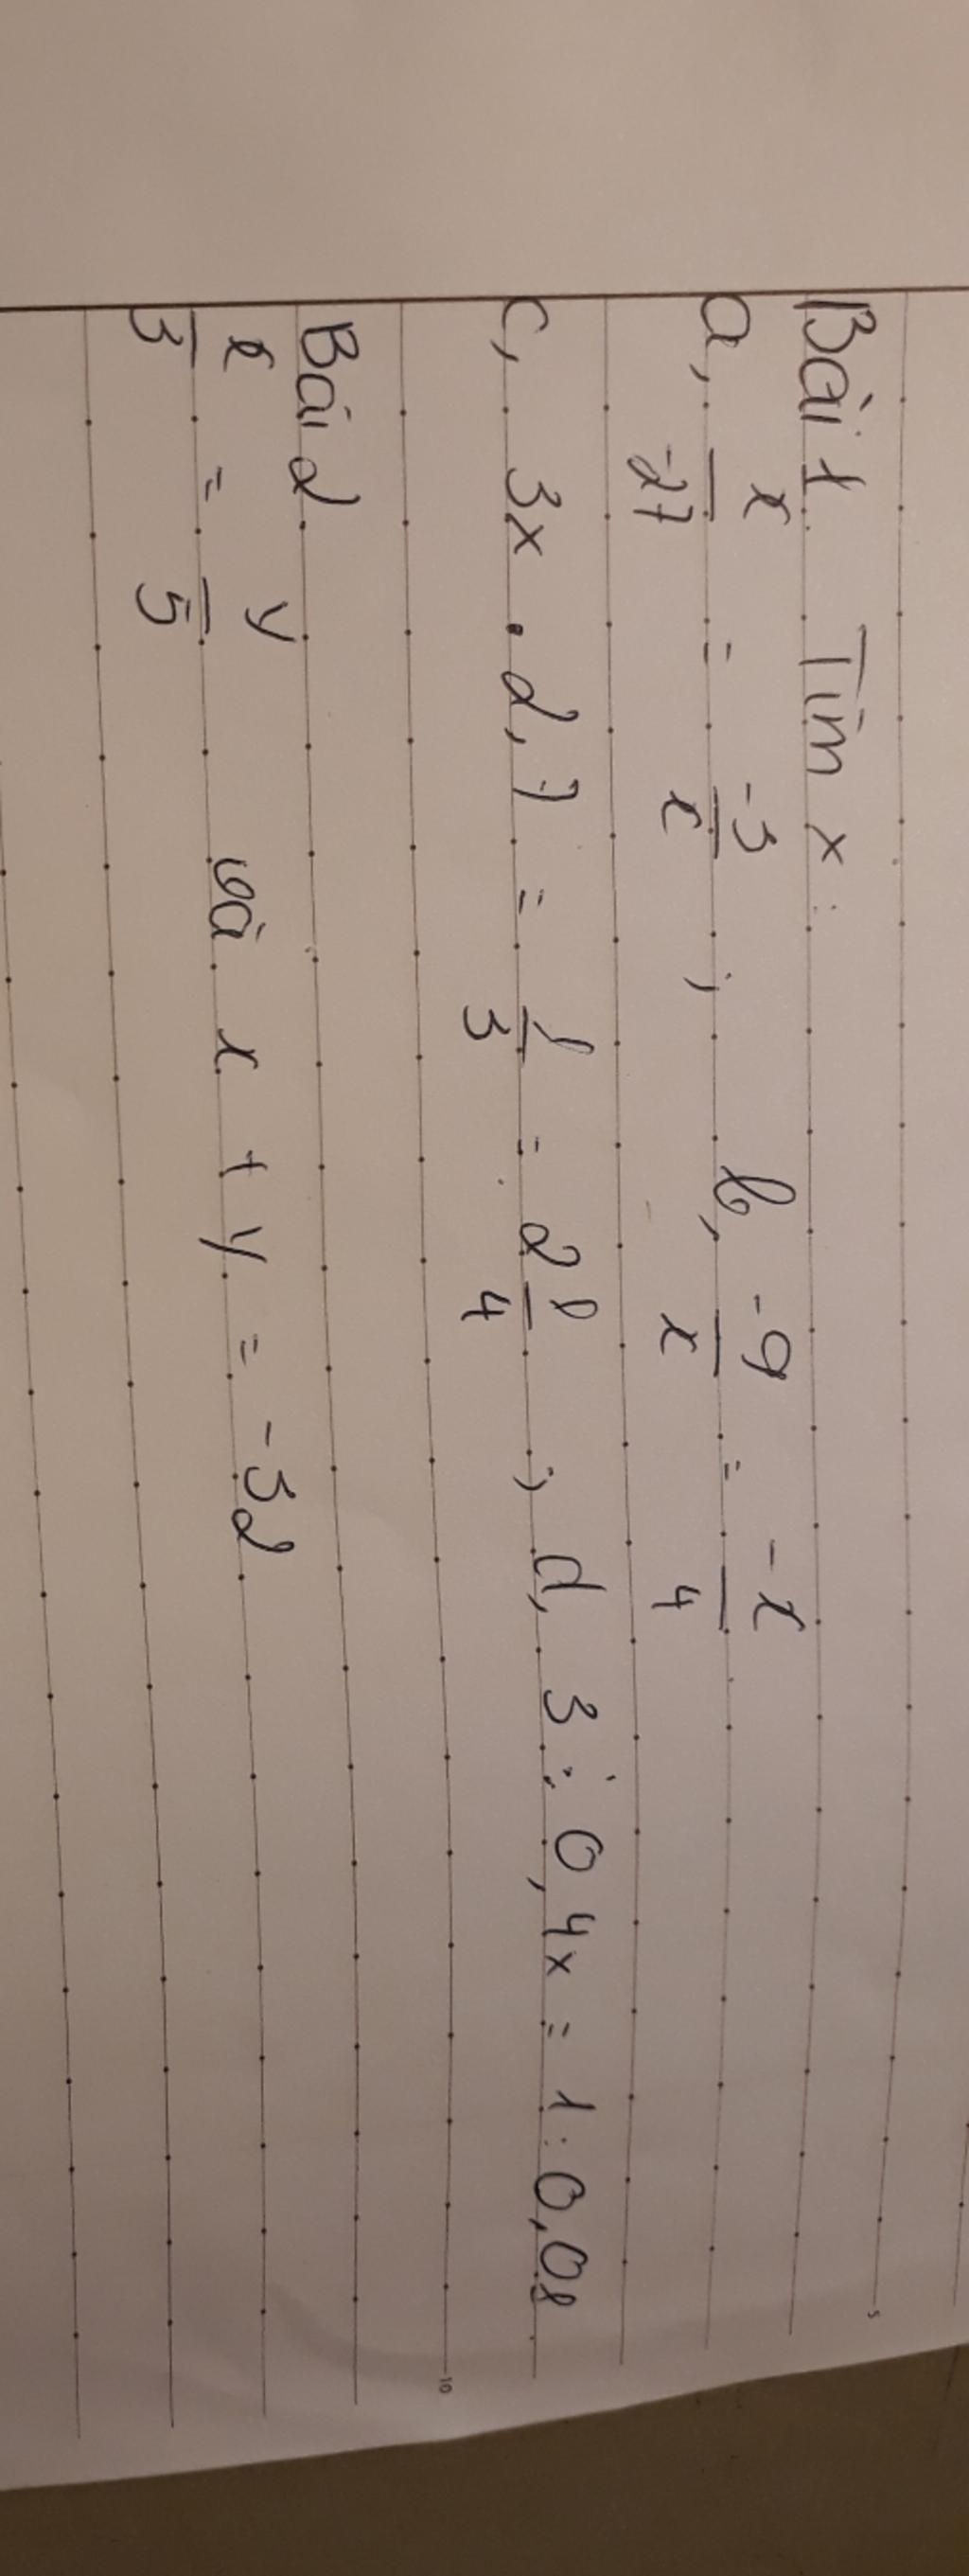 Bài 1. Tìm x:
a, x/-27 = -3/x ; b, -9/x = -x/4
c, 3x . 2,7 = 1/3 = 2 1/4 ; d, 3 : 0,4x = 1 : 0,01
Bài 2.
x/3 = y/5 và x + y = -32
5
10